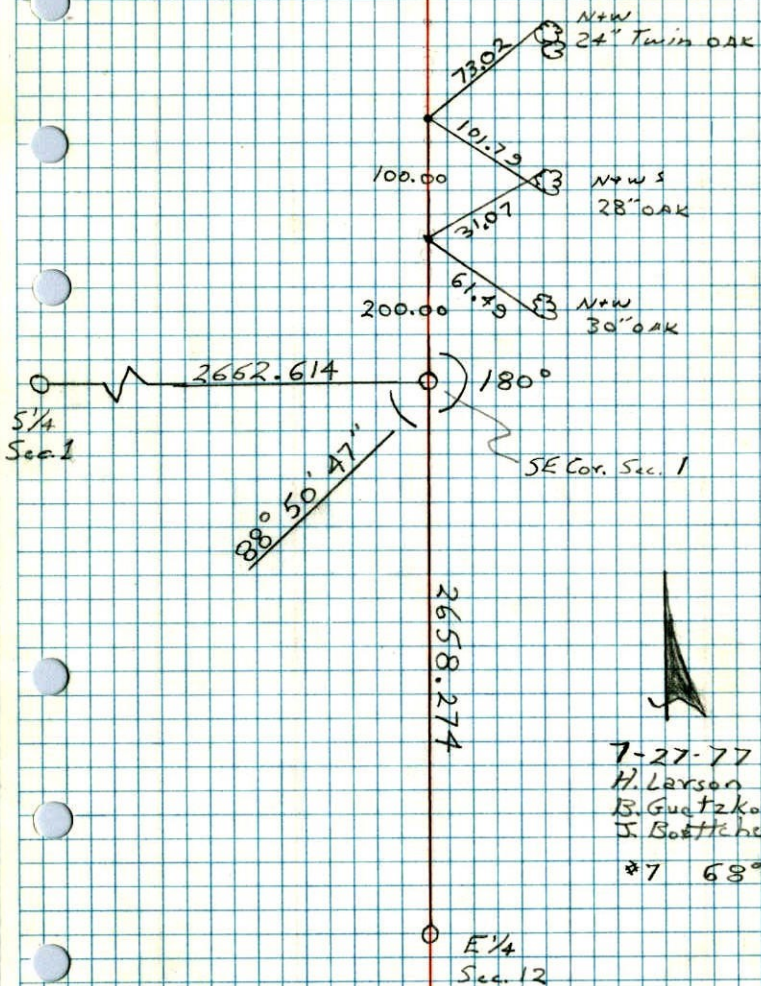 N+W
24" Twin OAK
73.02
101.79
100.00
N+W S
28" OAK
31.07
61.49
200.00
N+W
30" OAK
2662.614
180°
S 1/4
Sec. 1
SE Cor. Sec. 1
88° 50' 47"
2658.274
7-27-77
H. Larson
B. Guetzko
J. Boettche
#7 68°
E 1/4
Sec. 12